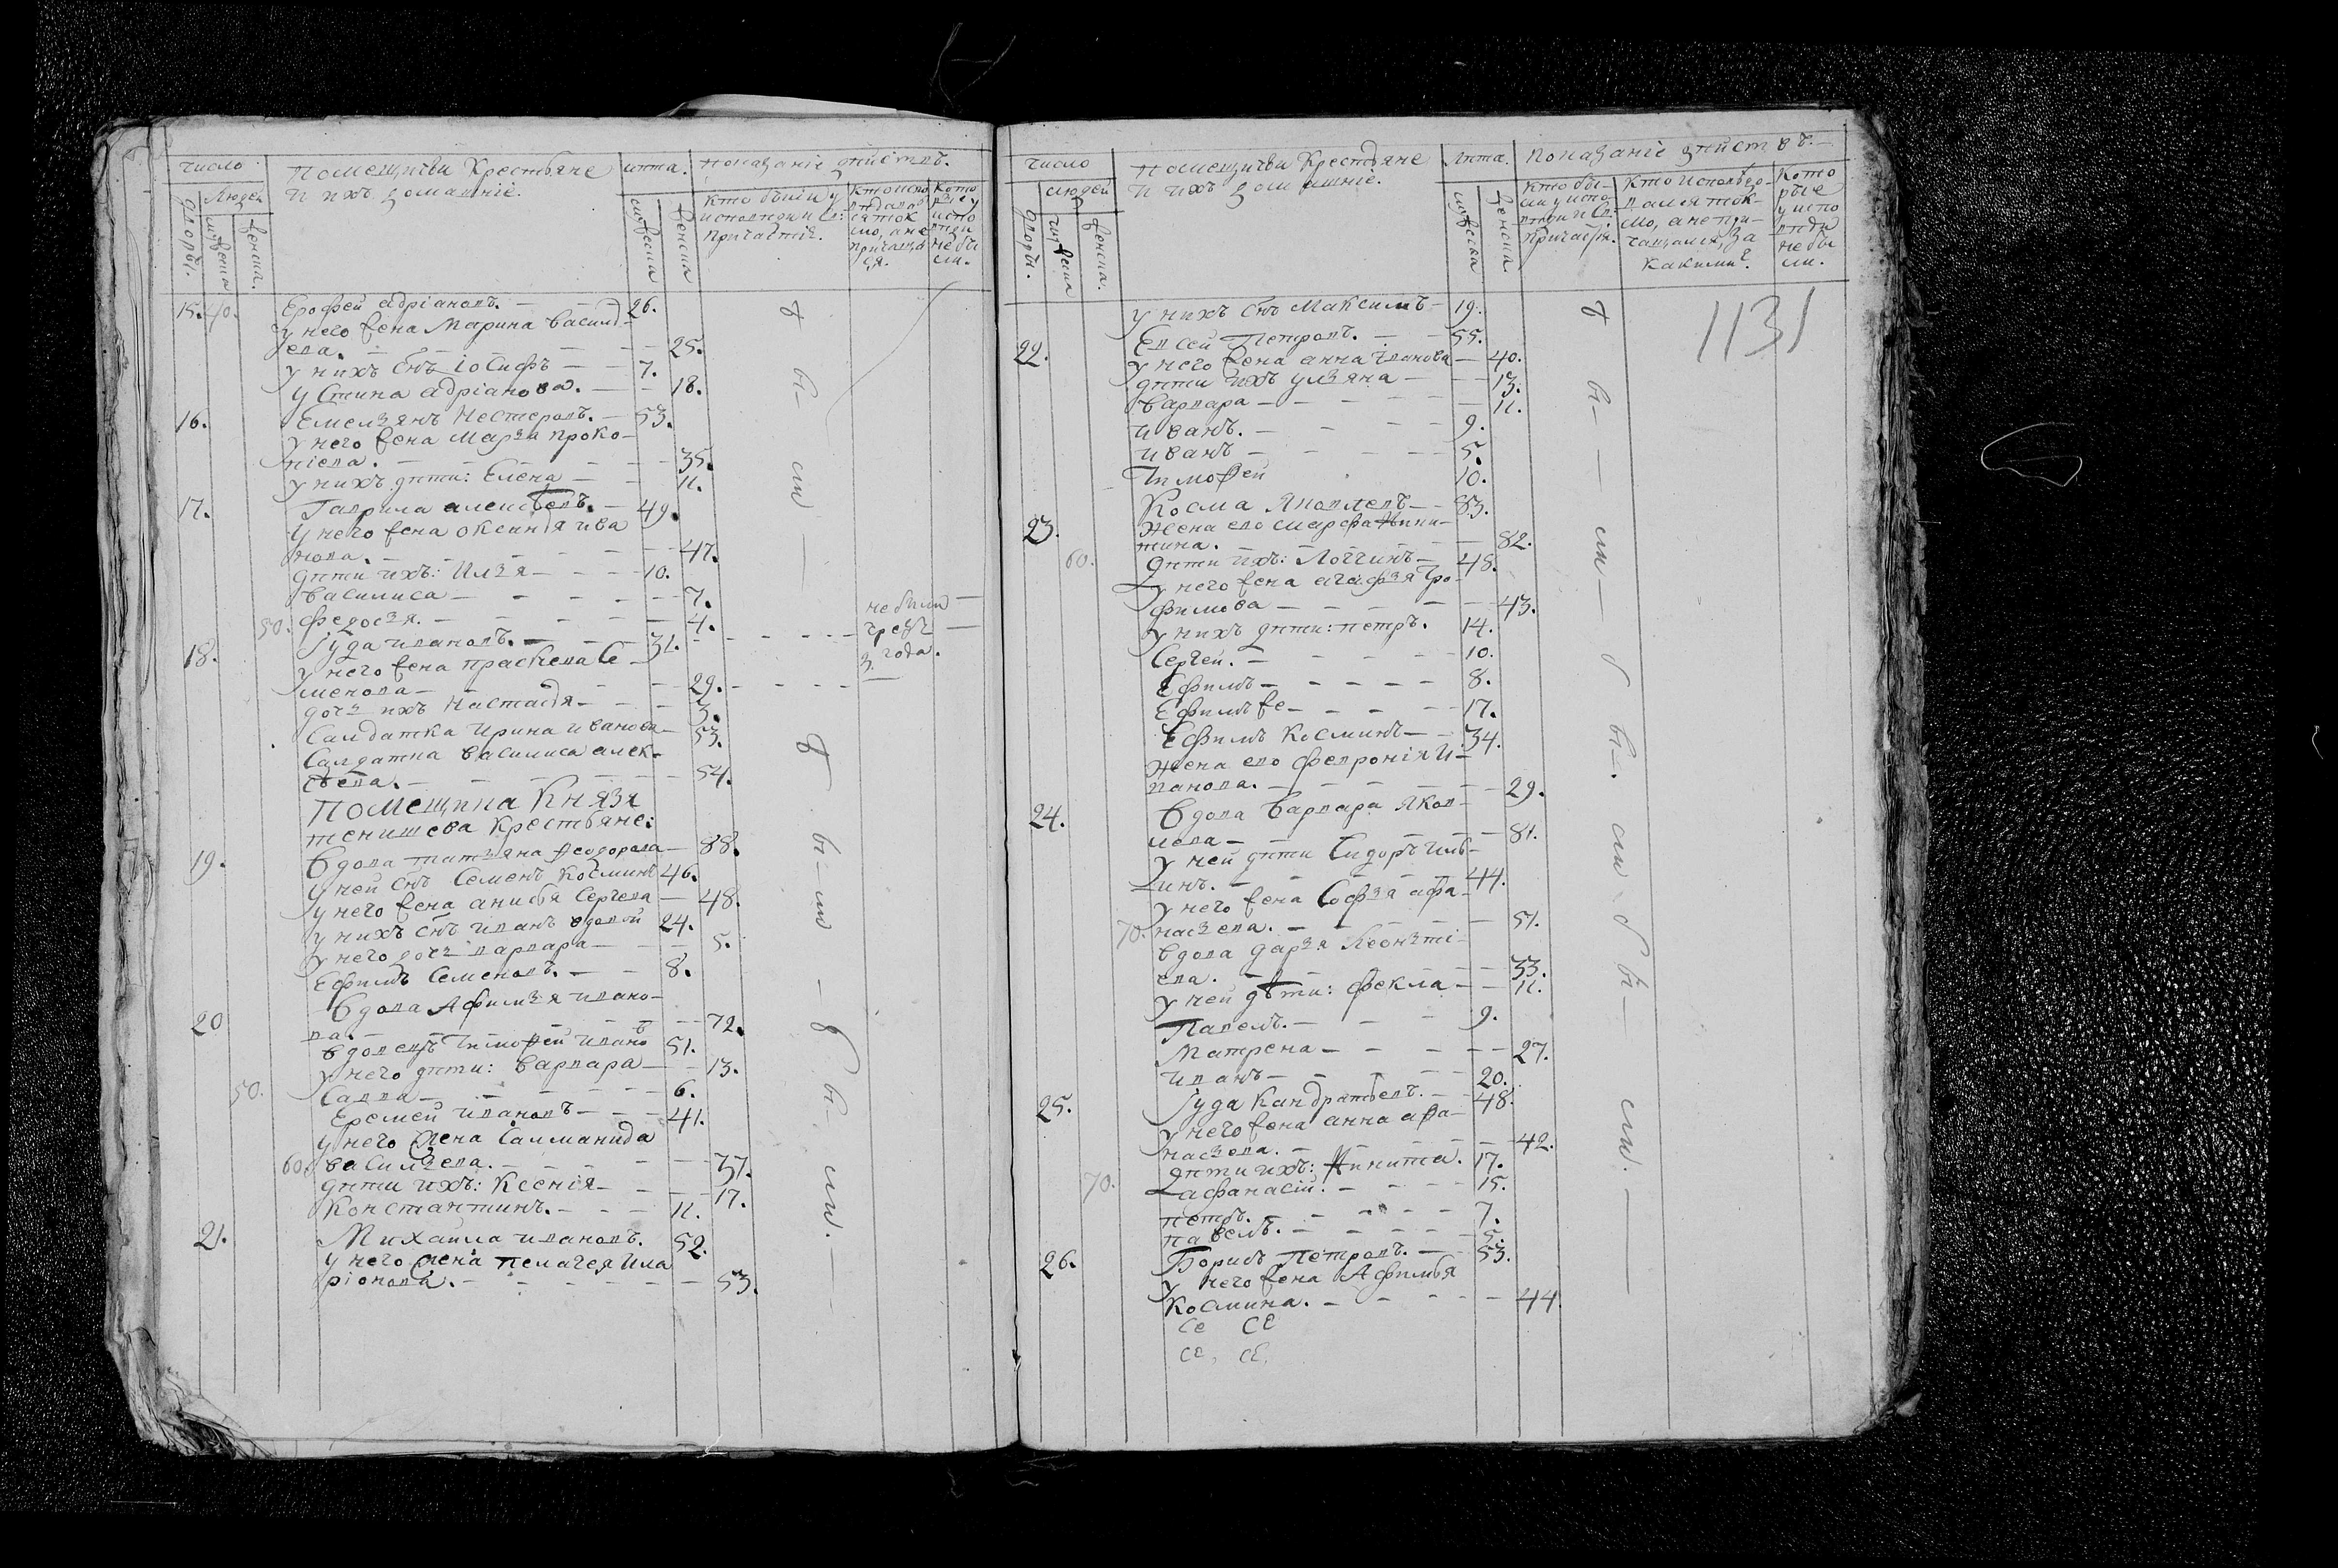 число
Помещичьи Крестьяне
и ихъ домашніе.
лѣта.
показаніе дѣйствъ.
людей
дворы.
мужеска
женска.
мужеска
женска
кто были у
исповѣди и св:
причастія.
кто испо
вѣдалъ
ся ток
мо, а не
причаща
ся.
кото
рые у
испо
вѣди
не бы
ли.
15. 40. Ерофей Адріановъ. — — 26.
У него жена Марина Василь
ева. — — — — 25.
у нихъ снъ Іосифъ — — 7.
Устина Адріанова. — — 18.
16. Емельянъ Нестеровъ. — 53.
У него жена Марья Проко—
піева. — — — — 35.
у нихъ дѣти: Елена — — 11.
17. Гаврила Алексѣевъ. — 49.
У него жена Оксинія Ива
нова. — — — — 47.
дѣти ихъ: Илья — — — 10.
Василиса — — — — 7.
50. Федосья. — — — — 4.
18. Іуда Ивановъ. — — 31.
не были
чрезъ
3. года.
У него жена Прасковья Се—
менова — — — — 29.
дочь ихъ Настасья — — — 3.
Салдатка Ирина Иванова — 53.
Салдатка Василиса Алек—
сѣева. — — — — 54.
Помещика Князя
Тенишева Крестьяне:
19. Вдова Татьяна Феодорова — 88.
У ней снъ Семенъ Косминъ 46.
у него жена Анисья Сергева — 48.
у нихъ снъ Иванъ вдовой 24.
у него дочь Варвара — — 5.
Ефимъ Семеновъ. — — 8.
20 Вдова Афимья Ивано—
ва. — — — — 72.
Вдовецъ Тимофей Ивановъ 51.
у него дѣти: Варвара — — 13.
50. Савва — — — — 6.
Еремей Ивановъ — — — 41.
У него жена Саламанида
60. Васильева. — — — — 37.
дѣти ихъ: Ксенія — — — 17.
Константинъ. — — — 11.
21. Михаила Ивановъ. 52.
у него жена Пелагея Ила
ріонова. — — — — 53.
были были были были
число
Помещичьи Крестьяне
и ихъ домашніе.
лѣта.
показаніе дѣйствъ.
людей
дворы.
мужеска
женска.
мужеска
женска
кто бы—
ли у испо—
вѣди и св:
причастія.
кто исповѣдо—
вался ток—
мо, а не при—
чащался, за
какими?
кото
рые
у испо
вѣди
не бы
ли.
1131
у нихъ снъ Максимъ — 19.
22. Евсей Петровъ. — — 55.
У него жена Анна Иванова — 40.
дѣти ихъ Ульяна — — 13.
Варвара — — — — 11.
Иванъ. — — — 9.
Иванъ — — — — 5.
Тимофей 10.
23. Косма Яковлевъ — — 83.
Жена ево Марфа Ники—
тина. — — — — 82.
60. Дѣти ихъ: Логгинъ — 48.
У него жена Агафья Тро—
фимова — — — — 43.
У нихъ дѣти: Петръ. — 14.
Сергей. — — — — 10.
Ефимъ — — — — 8.
Ефимъ же — — — — 17.
Ефимъ Косминъ — — 34.
Жена ево Февронія И—
ванова. — — — — 29.
24. Вдова Варвара Яков—
лева — — — — 81.
У ней дѣти Сидоръ Иль—
инъ. — — — — 44.
У него жена Софья Афа—
70. насьева. — — — — 51.
Вдова Дарья Леоньті—
ева. — — — — 33.
У ней дѣти: Фекла — — 11.
Павелъ. — — — 9.
Матрена — — — — 27.
Иванъ — — — — 20.
25. Іуда Кандратьевъ. — — 48.
У него жена Анна Афа—
насьева. — — — — 42.
Дѣти ихъ: Никита. 17.
70. Афанасій. — — — — 15.
Петръ. — — — — 7.
Павелъ. — — — — 5.
26. Борисъ Петровъ. — 53.
У него жена Афимья
Космина. — — — — 44.
были были были
се се
се, се,